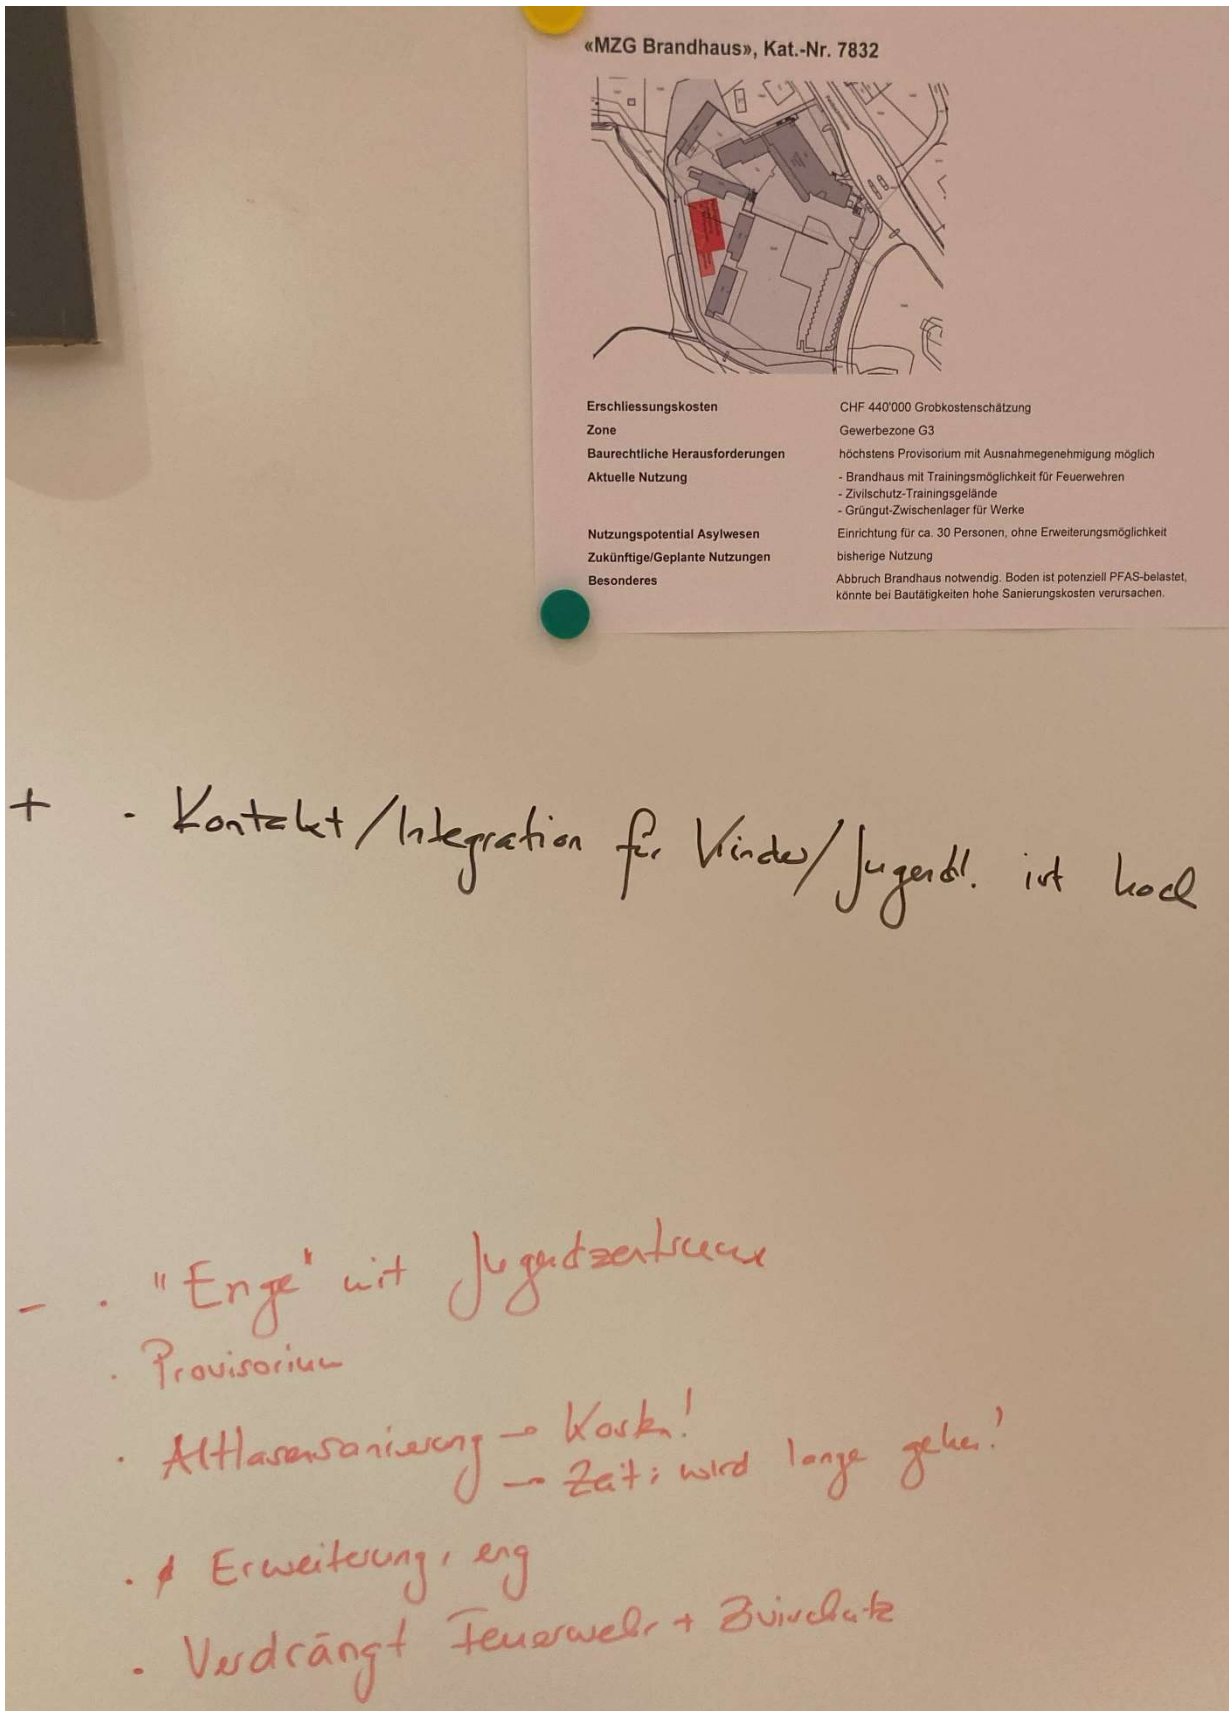 «MZG Brandhaus», Kat.-Nr. 7832
Erschliessungskosten CHF 440'000 Grobkostenschätzung
Zone Gewerbezone G3
Baurechtliche Herausforderungen höchstens Provisorium mit Ausnahmegenehmigung möglich
Aktuelle Nutzung - Brandhaus mit Trainingsmöglichkeit für Feuerwehren
- Zivilschutz-Trainingsgelände
- Grüngut-Zwischenlager für Werke
Nutzungspotential Asylwesen Einrichtung für ca. 30 Personen, ohne Erweiterungsmöglichkeit
Zukünftige/Geplante Nutzungen bisherige Nutzung
Besonderes Abbruch Brandhaus notwendig. Boden ist potenziell PFAS-belastet,
könnte bei Bautätigkeiten hohe Sanierungskosten verursachen.
+ - Kontakt/Integration für Kinder/Jugendl. ist hoch
- · "Enge" mit Jugendzentrum
· Provisorium
· Altlasensanierung → Kosten!
→ Zeit: wird lange gehen!
· Erweiterung, eng
· Verdrängt Feuerwehr +